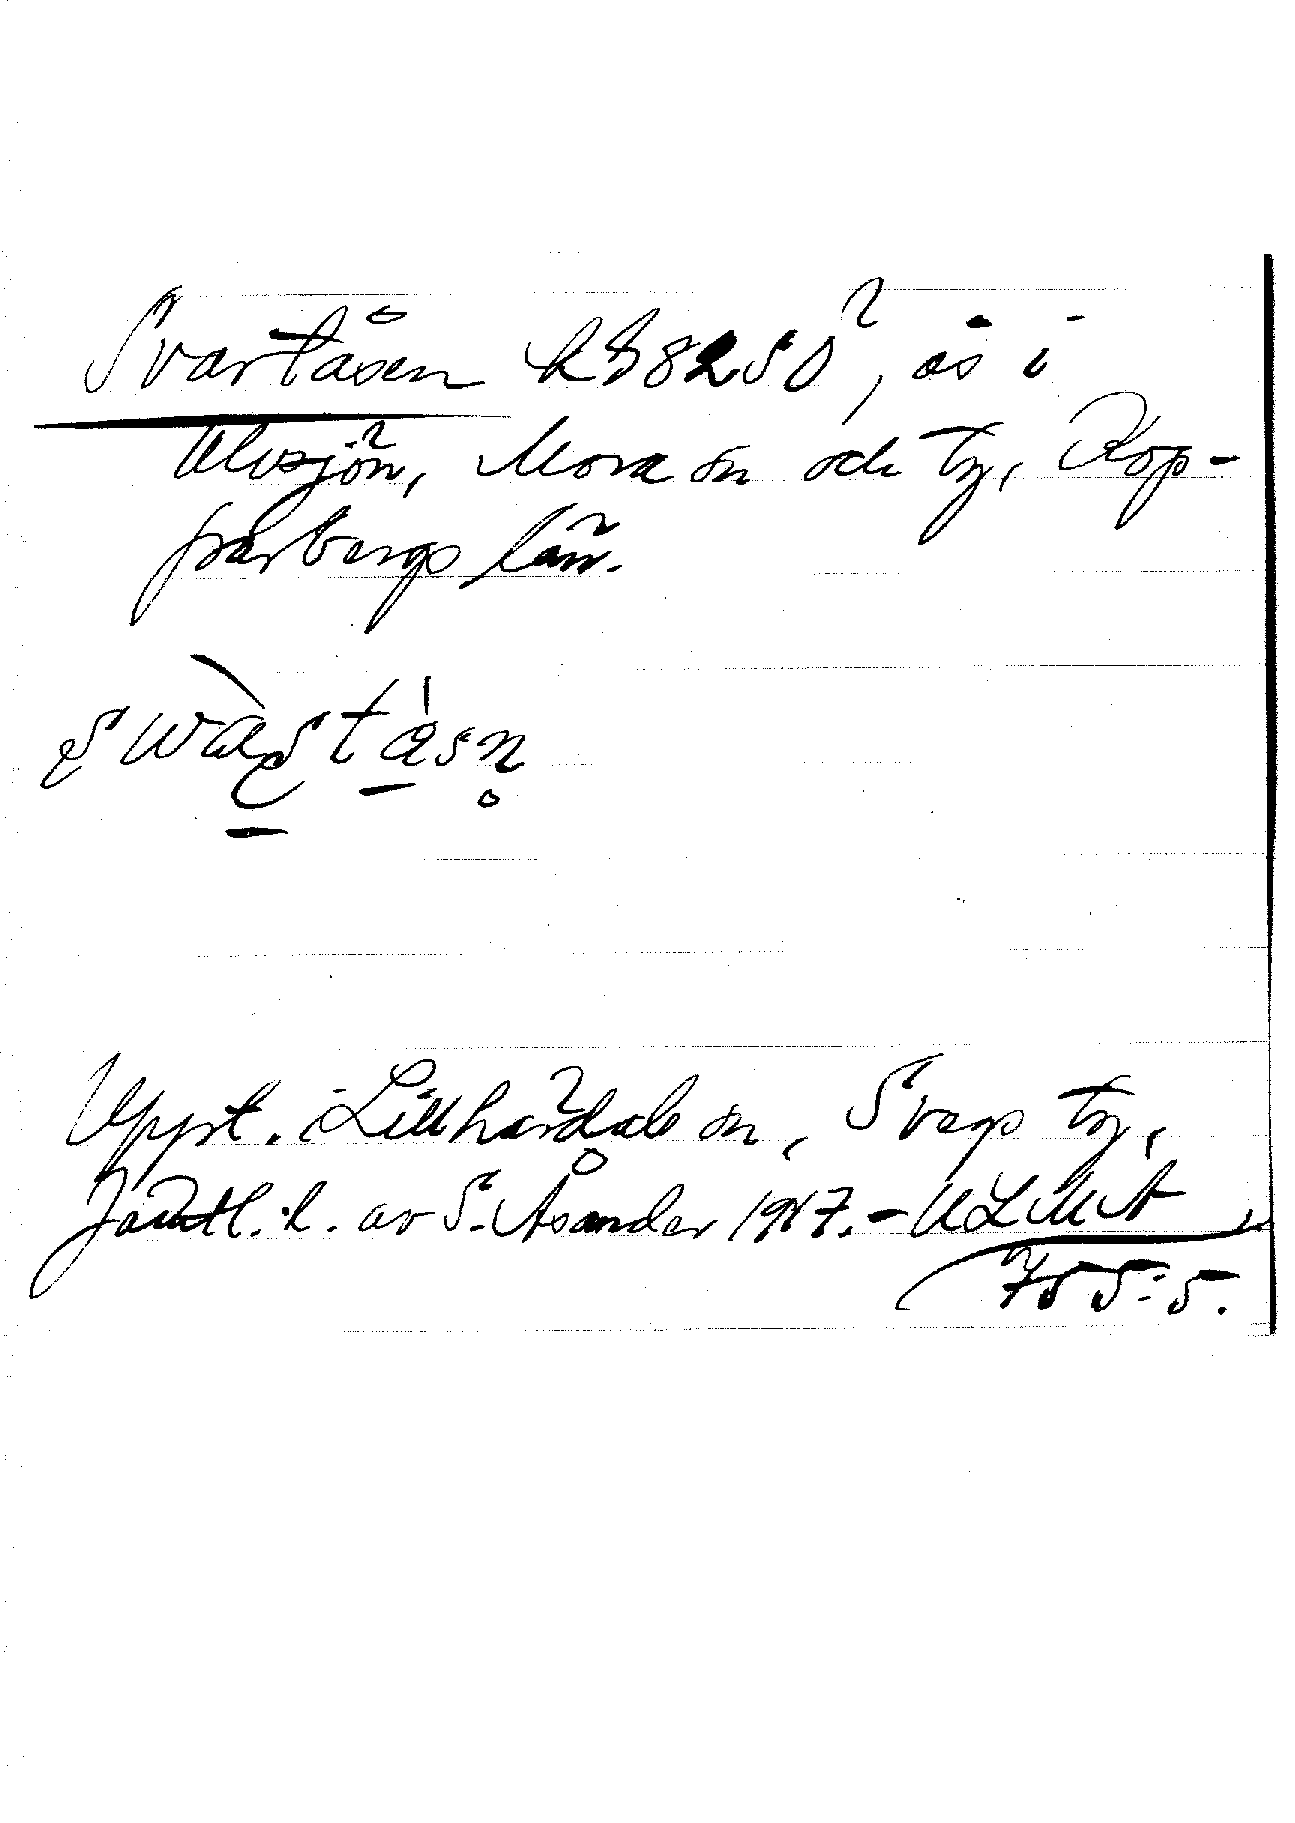 Svartåsen k 8 8 2 S Ö, ås i
Ulvsjön, Mora sn och tg, Kop-
parbergs län.
Uppt. i Lillhärdals sn, Svegs tg,
Jämtl. l. av S. Åsander 1917. - ULMA
755:5.